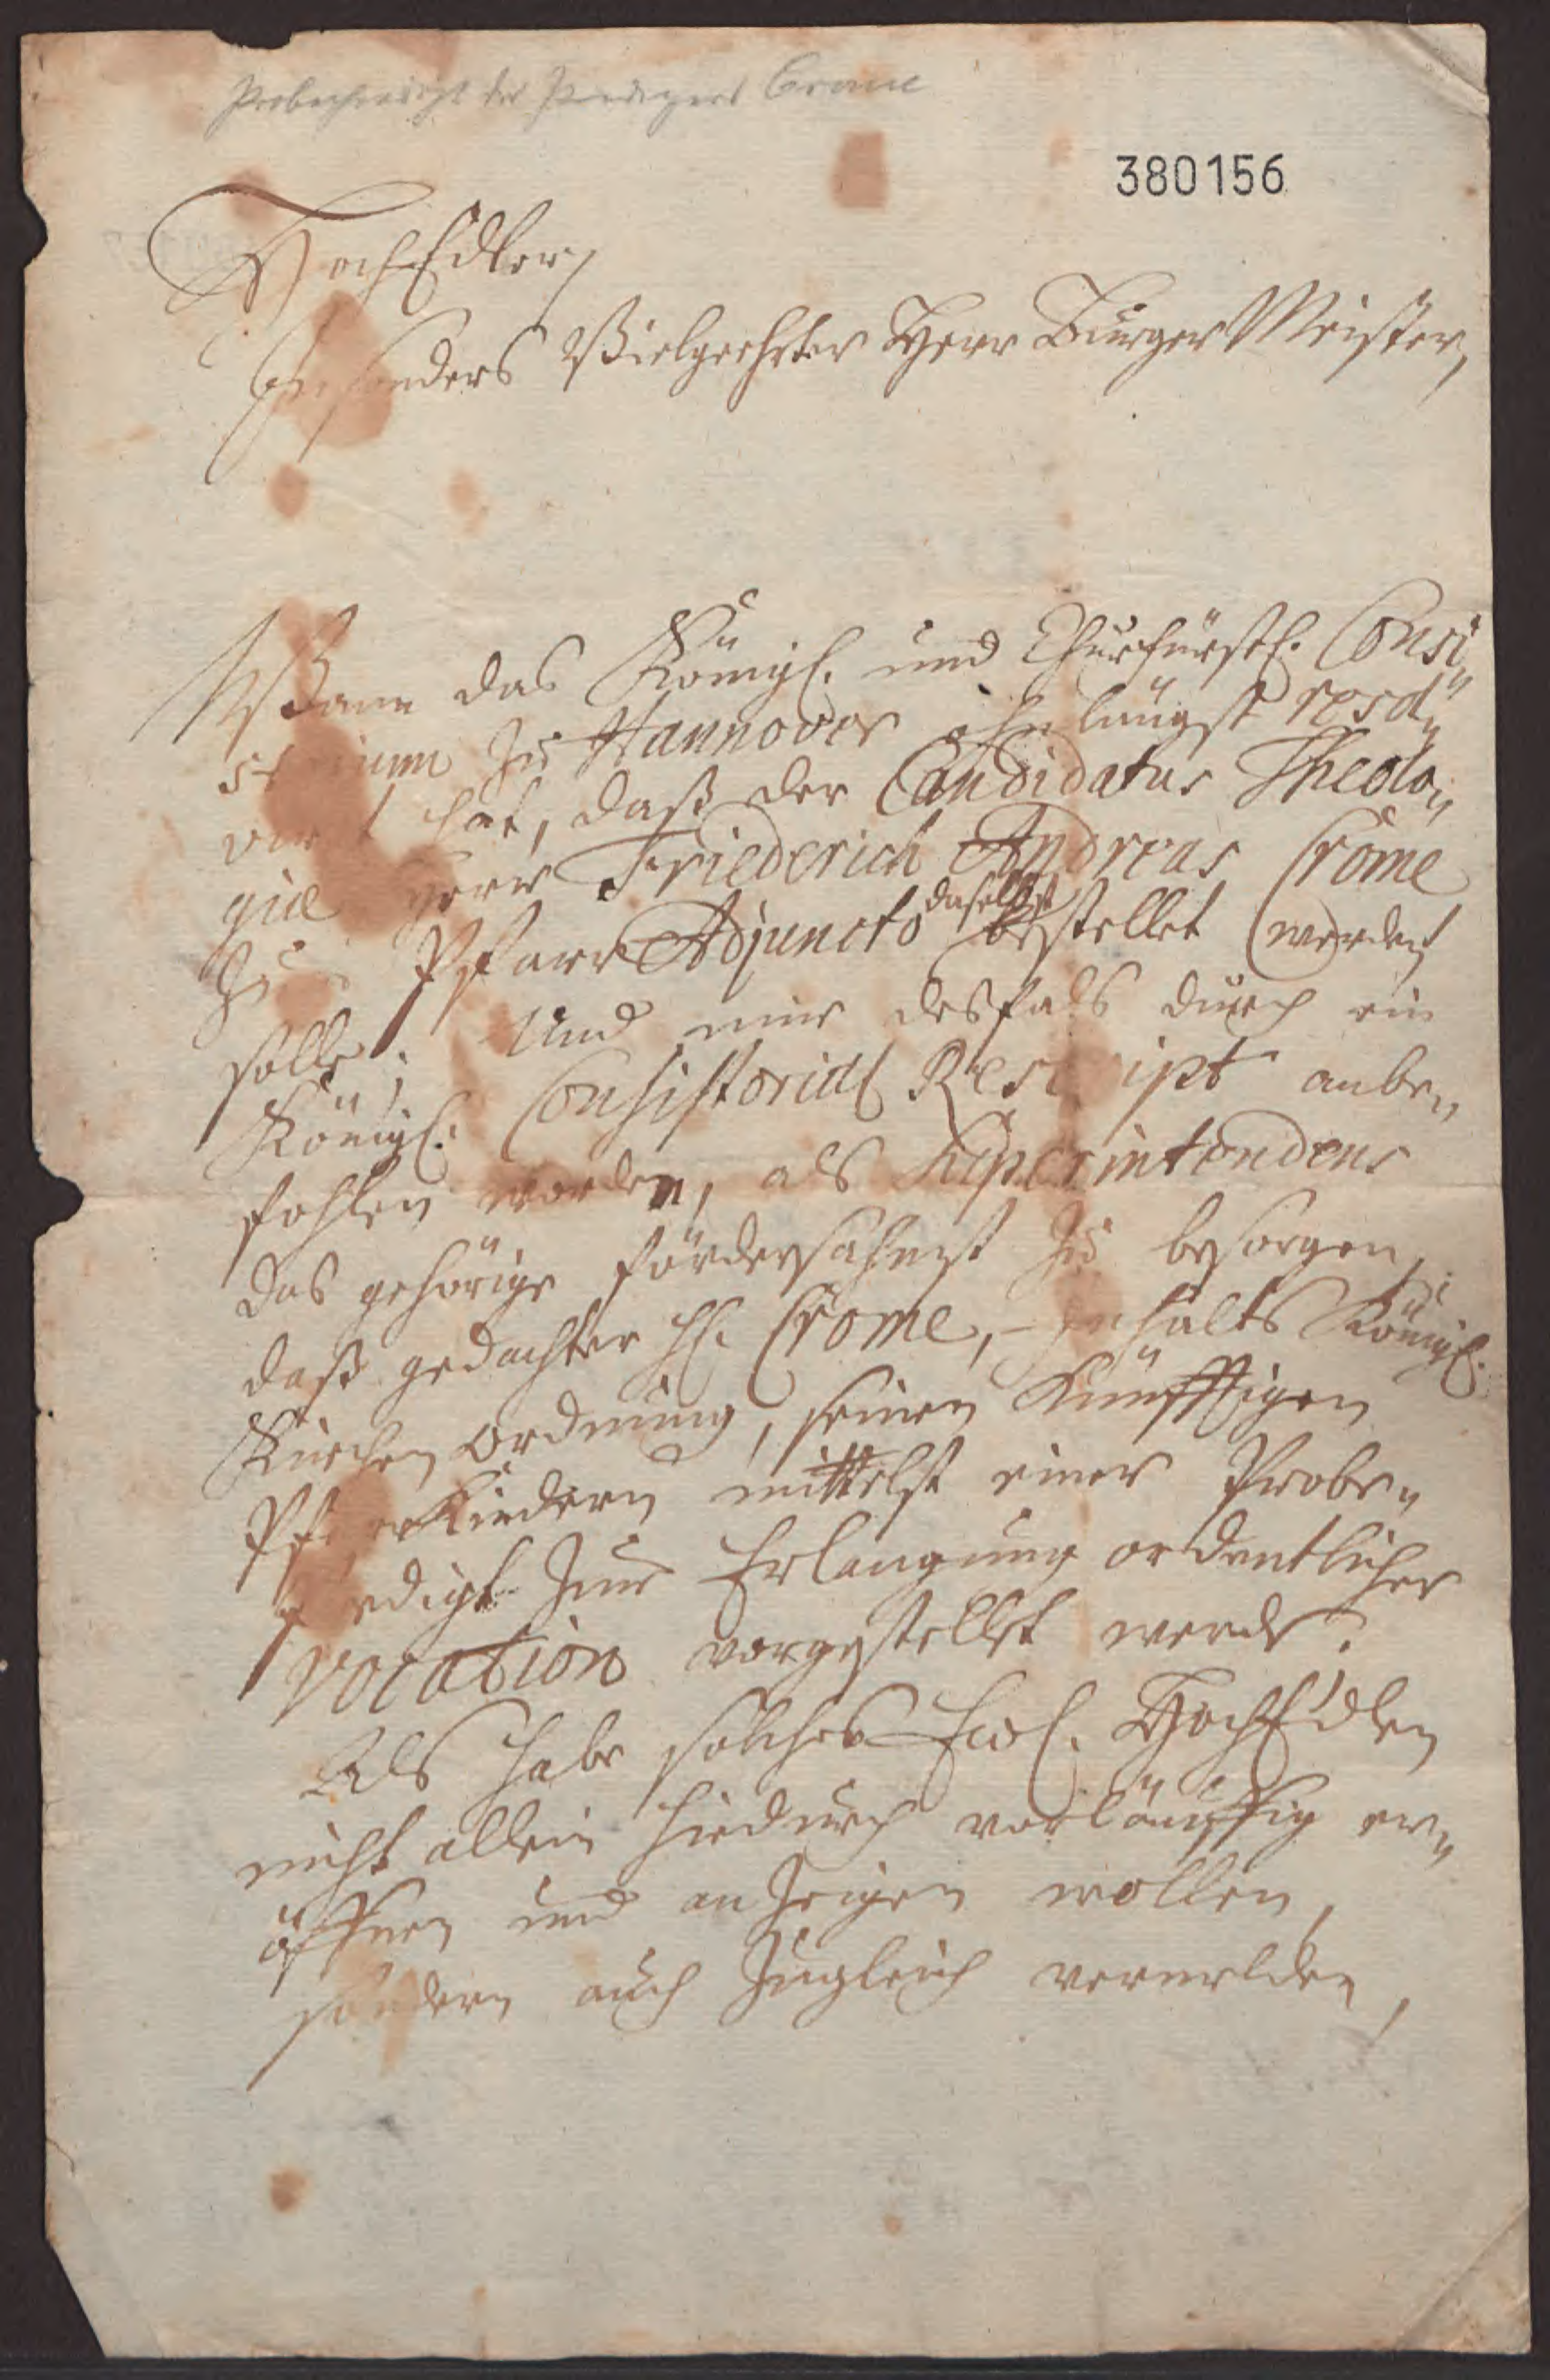 Probepredigt des Predigers Crome
380156
HochEdler,
besonders Vielgeehrter Herr BurgerMeister,
Wann das Königl. und Churfürstl. Consi„
storium zu Hannover ohnlängst resol„
virt hat, daß der Candidatus Theolo„
giæ Herr Friederich Andreas Crome
zum Pfarr Adjuncto daselbst bestellet werden
solle; Und mir desfals durch ein
Königl. Consistorial Rescript anbe„
fohlen worden, als Superintendens
das gehörige fördersahmst zu besorgen,
daß gedachter H. Crome, inhalts Königl.
Kirchen ordnung, seinen künfftigen
Pfarrkindern mittelst einer Probe„
predigt zur Erlangung ordentlicher
vocation vorgestellet werde.
Als habe solches Ewl. HochEdlen
nicht allein hiedurch vorläuffig er„
öffnen und anzeigen wollen,
sondern auch zugleich vermelden,